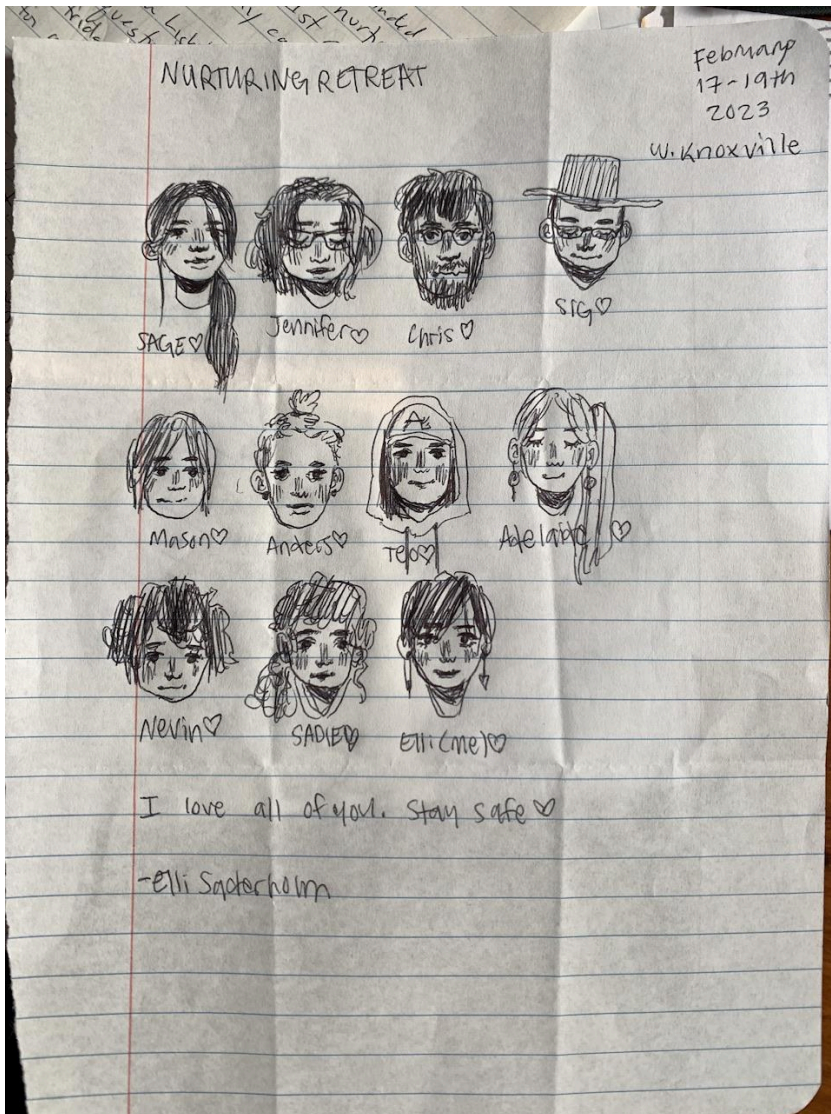 NURTURING RETREAT
February
17-19th
2023
W. Knoxville
SAGE♡ Jennifer♡ Chris♡ SIG♡
A
Mason♡ Anders♡ TEO♡ Adelaide ♡
Nevin♡ SADIE♡ Elli (me)♡
I love all of you. Stay safe♡
-Elli